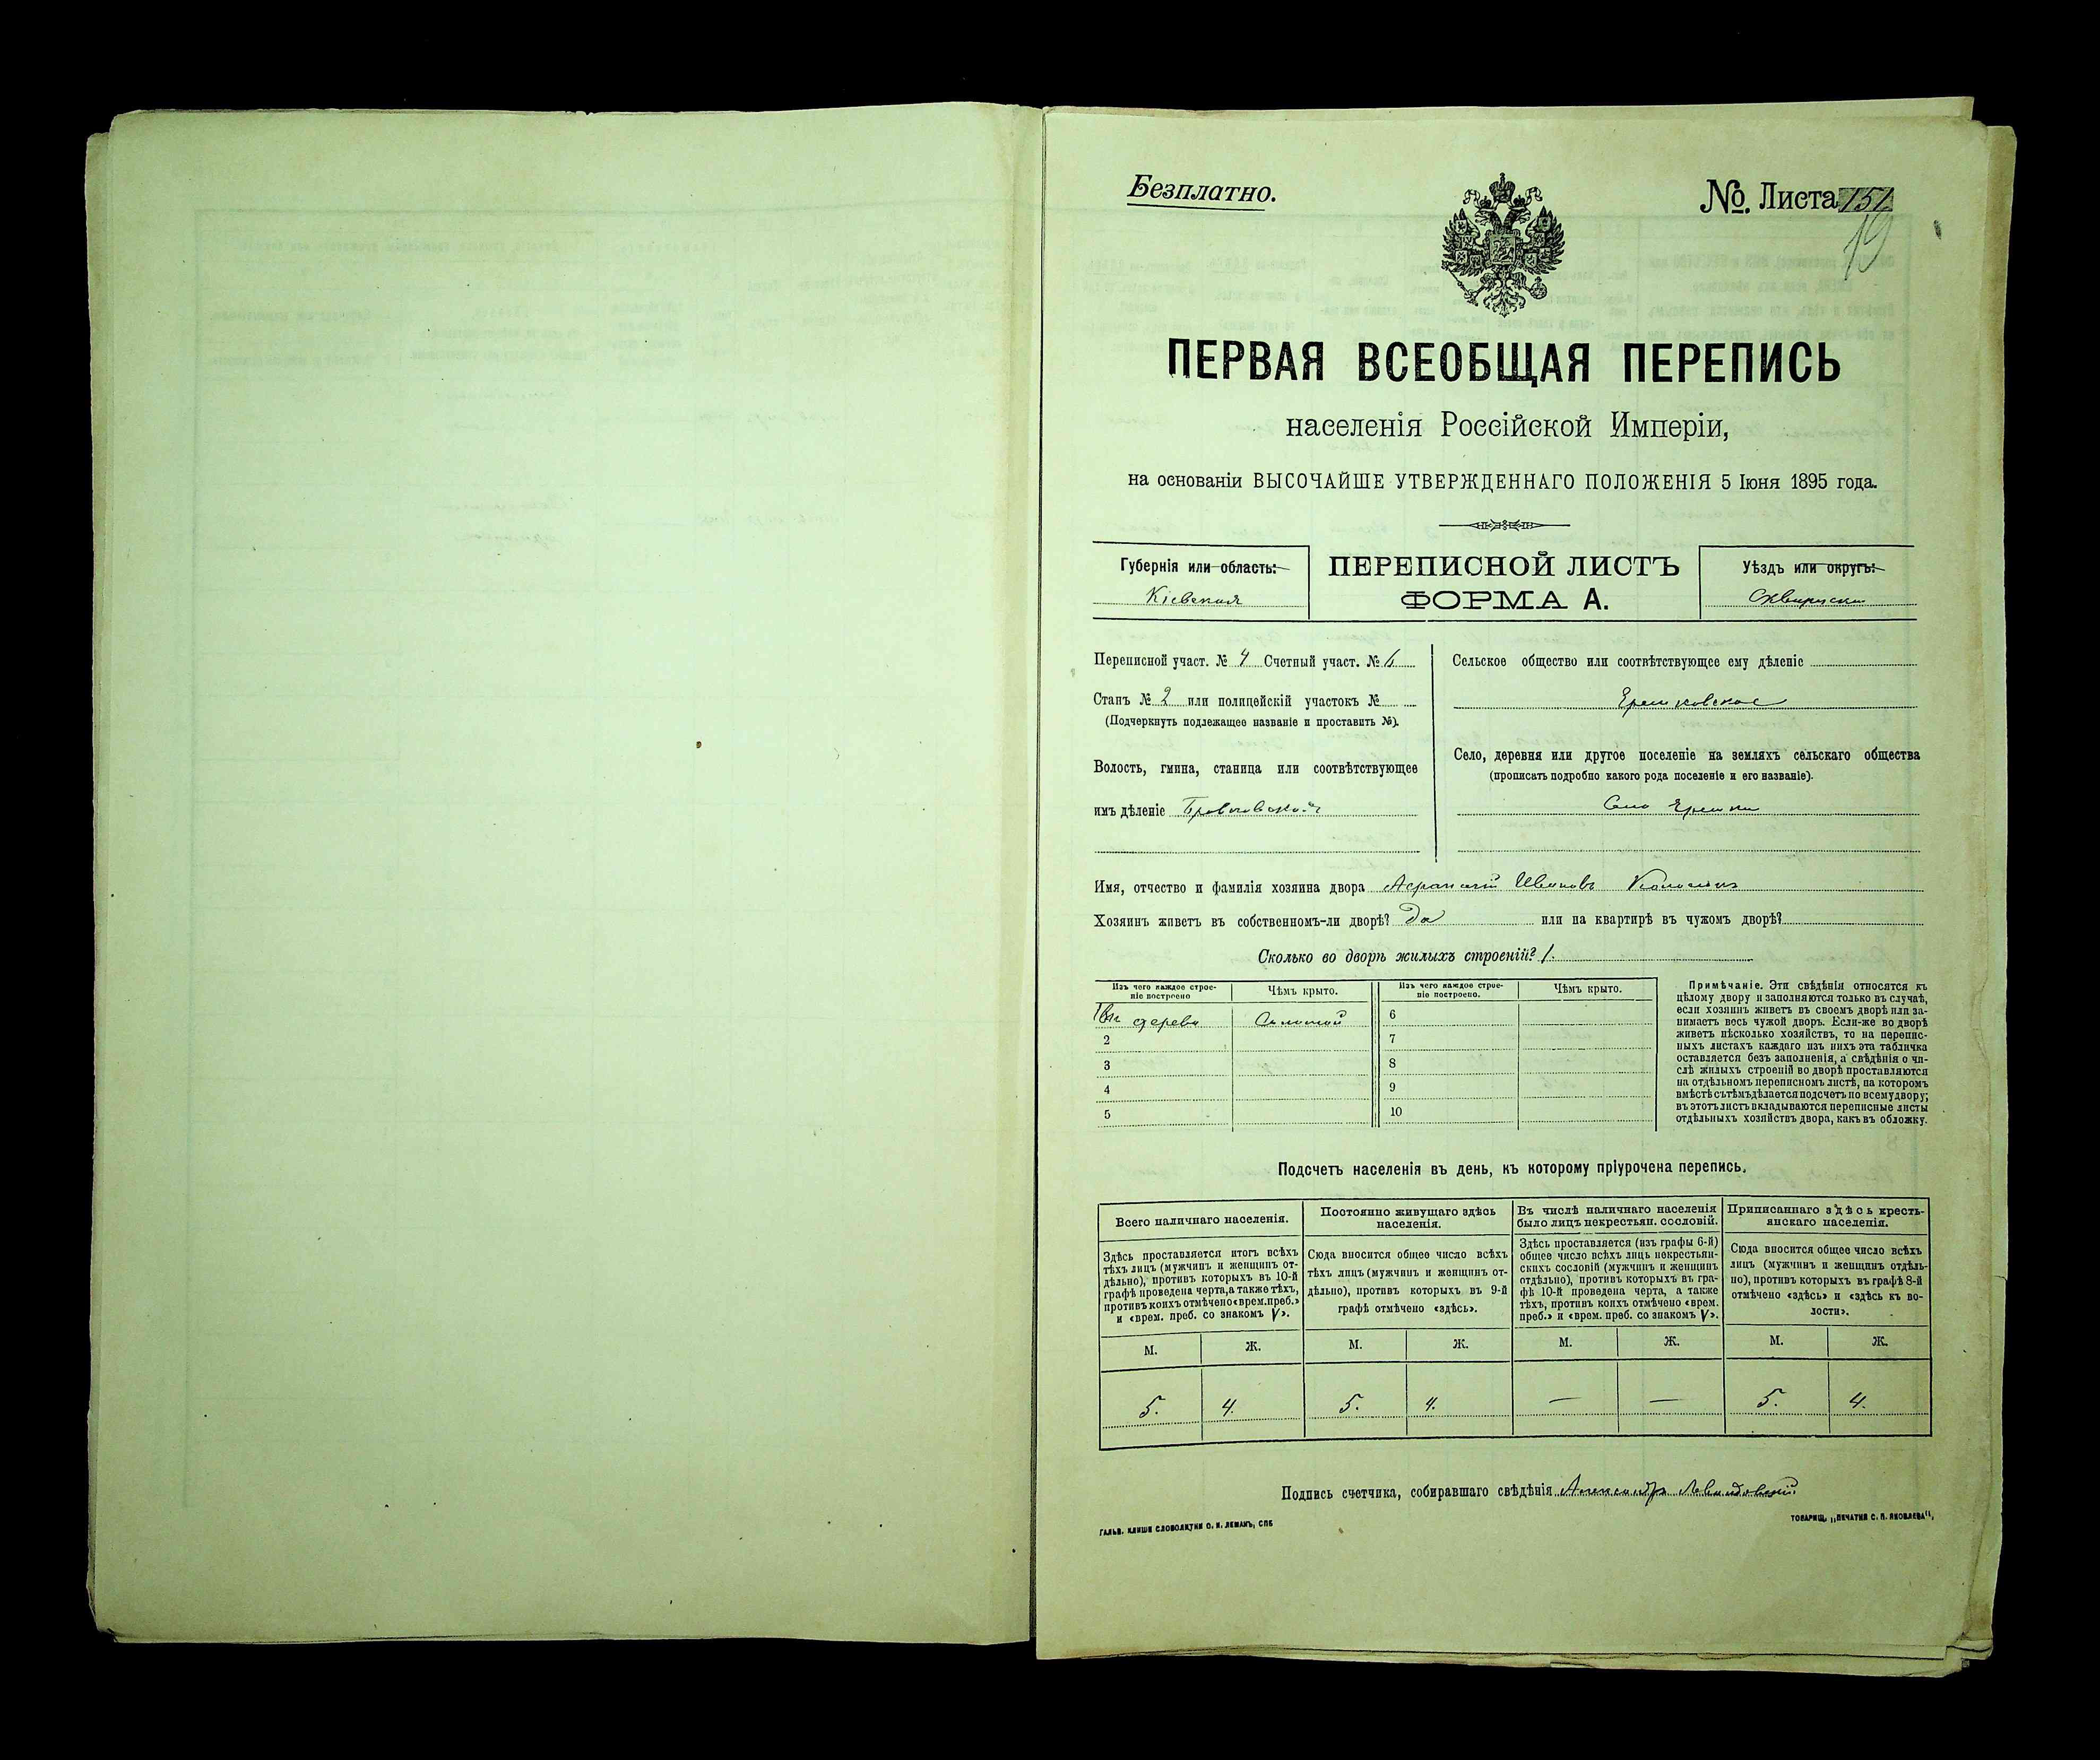 Безплатно.
№. Листа 151
19
ПЕРВАЯ ВСЕОБЩАЯ ПЕРЕПИСЬ
населенія Россійской Имперіи,
на основаніи ВЫСОЧАЙШЕ УТВЕРЖДЕННАГО ПОЛОЖЕНІЯ 5 Іюня 1895 года.
Губернія или область:
Кіевская
ПЕРЕПИСНОЙ ЛИСТЪ
ФОРМА А.
Уѣздъ или округъ:
Сквирскій
Переписной участ. № 4 Счетный участ. № 6
Станъ № 2 или полицейскій участокъ №
(Подчеркнуть подлежащее названіе и проставить №).
Волость, гмина, станица или соотвѣтствующее
имъ дѣленіе
Сельское общество или соотвѣтствующее ему дѣленіе
Ерешковское
Село, деревня или другое поселеніе на земляхъ сельскаго общества
(прописать подробно какого рода поселеніе и его названіе).
Село Ерешки
Имя, отчество и фамилія хозяина двора Ивановъ
Хозяинъ живетъ въ собственномъ-ли дворѣ? Да или на квартирѣ въ чужомъ дворѣ?
Сколько во дворѣ жилыхъ строеній? 1.
Изъ чего каждое строе-
ніе построено
Чѣмъ крыто.
Изъ чего каждое строе-
ніе построено.
Чѣмъ крыто.
дерева Соломой
2
3
4
5
6
7
8
9
10
Примѣчаніе. Эти свѣдѣнія относятся къ
цѣлому двору и заполняются только въ случаѣ,
если хозяинъ живетъ въ своемъ дворѣ или за-
нимаетъ весь чужой дворъ. Если-же во дворѣ
живетъ нѣсколько хозяйствъ, то на перепис-
ныхъ листахъ каждаго изъ нихъ эта табличка
оставляется безъ заполненія, а свѣдѣнія о чи-
слѣ жилыхъ строеній во дворѣ проставляются
на отдѣльномъ переписномъ листѣ, на которомъ
вмѣстѣ съ тѣмъ дѣлается подсчетъ по всему двору;
въ этотъ листъ вкладываются переписные листы
отдѣльныхъ хозяйствъ двора, какъ въ обложку.
Подсчетъ населенія въ день, къ которому пріурочена перепись.
Всего наличнаго населенія.
Здѣсь проставляется итогъ всѣхъ
тѣхъ лицъ (мужчинъ и женщинъ от-
дѣльно), противъ которыхъ въ 10-й
графѣ проведена черта, а также тѣхъ,
противъ коихъ отмѣчено «врем. преб.»
и «врем. преб. со знакомъ V».
Постоянно живущаго здѣсь
населенія.
Сюда вносится общее число всѣхъ
тѣхъ лицъ (мужчинъ и женщинъ от-
дѣльно), противъ которыхъ въ 9-й
графѣ отмѣчено «здѣсь».
Въ числѣ наличнаго населенія
было лицъ некрестьян. сословій.
Здѣсь проставляется (изъ графы 6-й)
общее число всѣхъ лицъ некрестьян-
скихъ сословій (мужчинъ и женщинъ
отдѣльно), противъ которыхъ въ гра-
фѣ 10-й проведена черта, а также
тѣхъ, противъ коихъ отмѣчено «врем.
преб.» и «врем. преб. со знакомъ V».
Приписаннаго здѣсь кресть-
янскаго населенія.
Сюда вносится общее число всѣхъ
лицъ (мужчинъ и женщинъ отдѣль-
но), противъ которыхъ въ графѣ 8-й
отмѣчено «здѣсь» и «здѣсь къ во-
лости».
М. Ж. М. Ж. М. Ж. М. Ж.
5. 4. 5. 4. — — 5. 4.
Подпись счетчика, собиравшаго свѣдѣнія Александръ Левандовскій
ГАЛЬВ. КЛИШЕ СЛОВОЛИТНИ О. И. ЛЕМАНЪ, СПБ
ТОВАРИЩ. „ПЕЧАТНЯ С. П. ЯКОВЛЕВА",